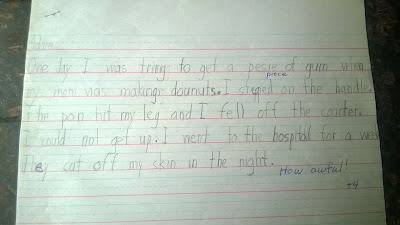 One day I was tring to get a pesie of gum when
piece
my mom was making dounuts. I steped on the handle.
The pan hit my leg and I fell off the counter.
I could not get up. I went to the hospital for a week
They cat off my skin in the night.
How awful!
+4